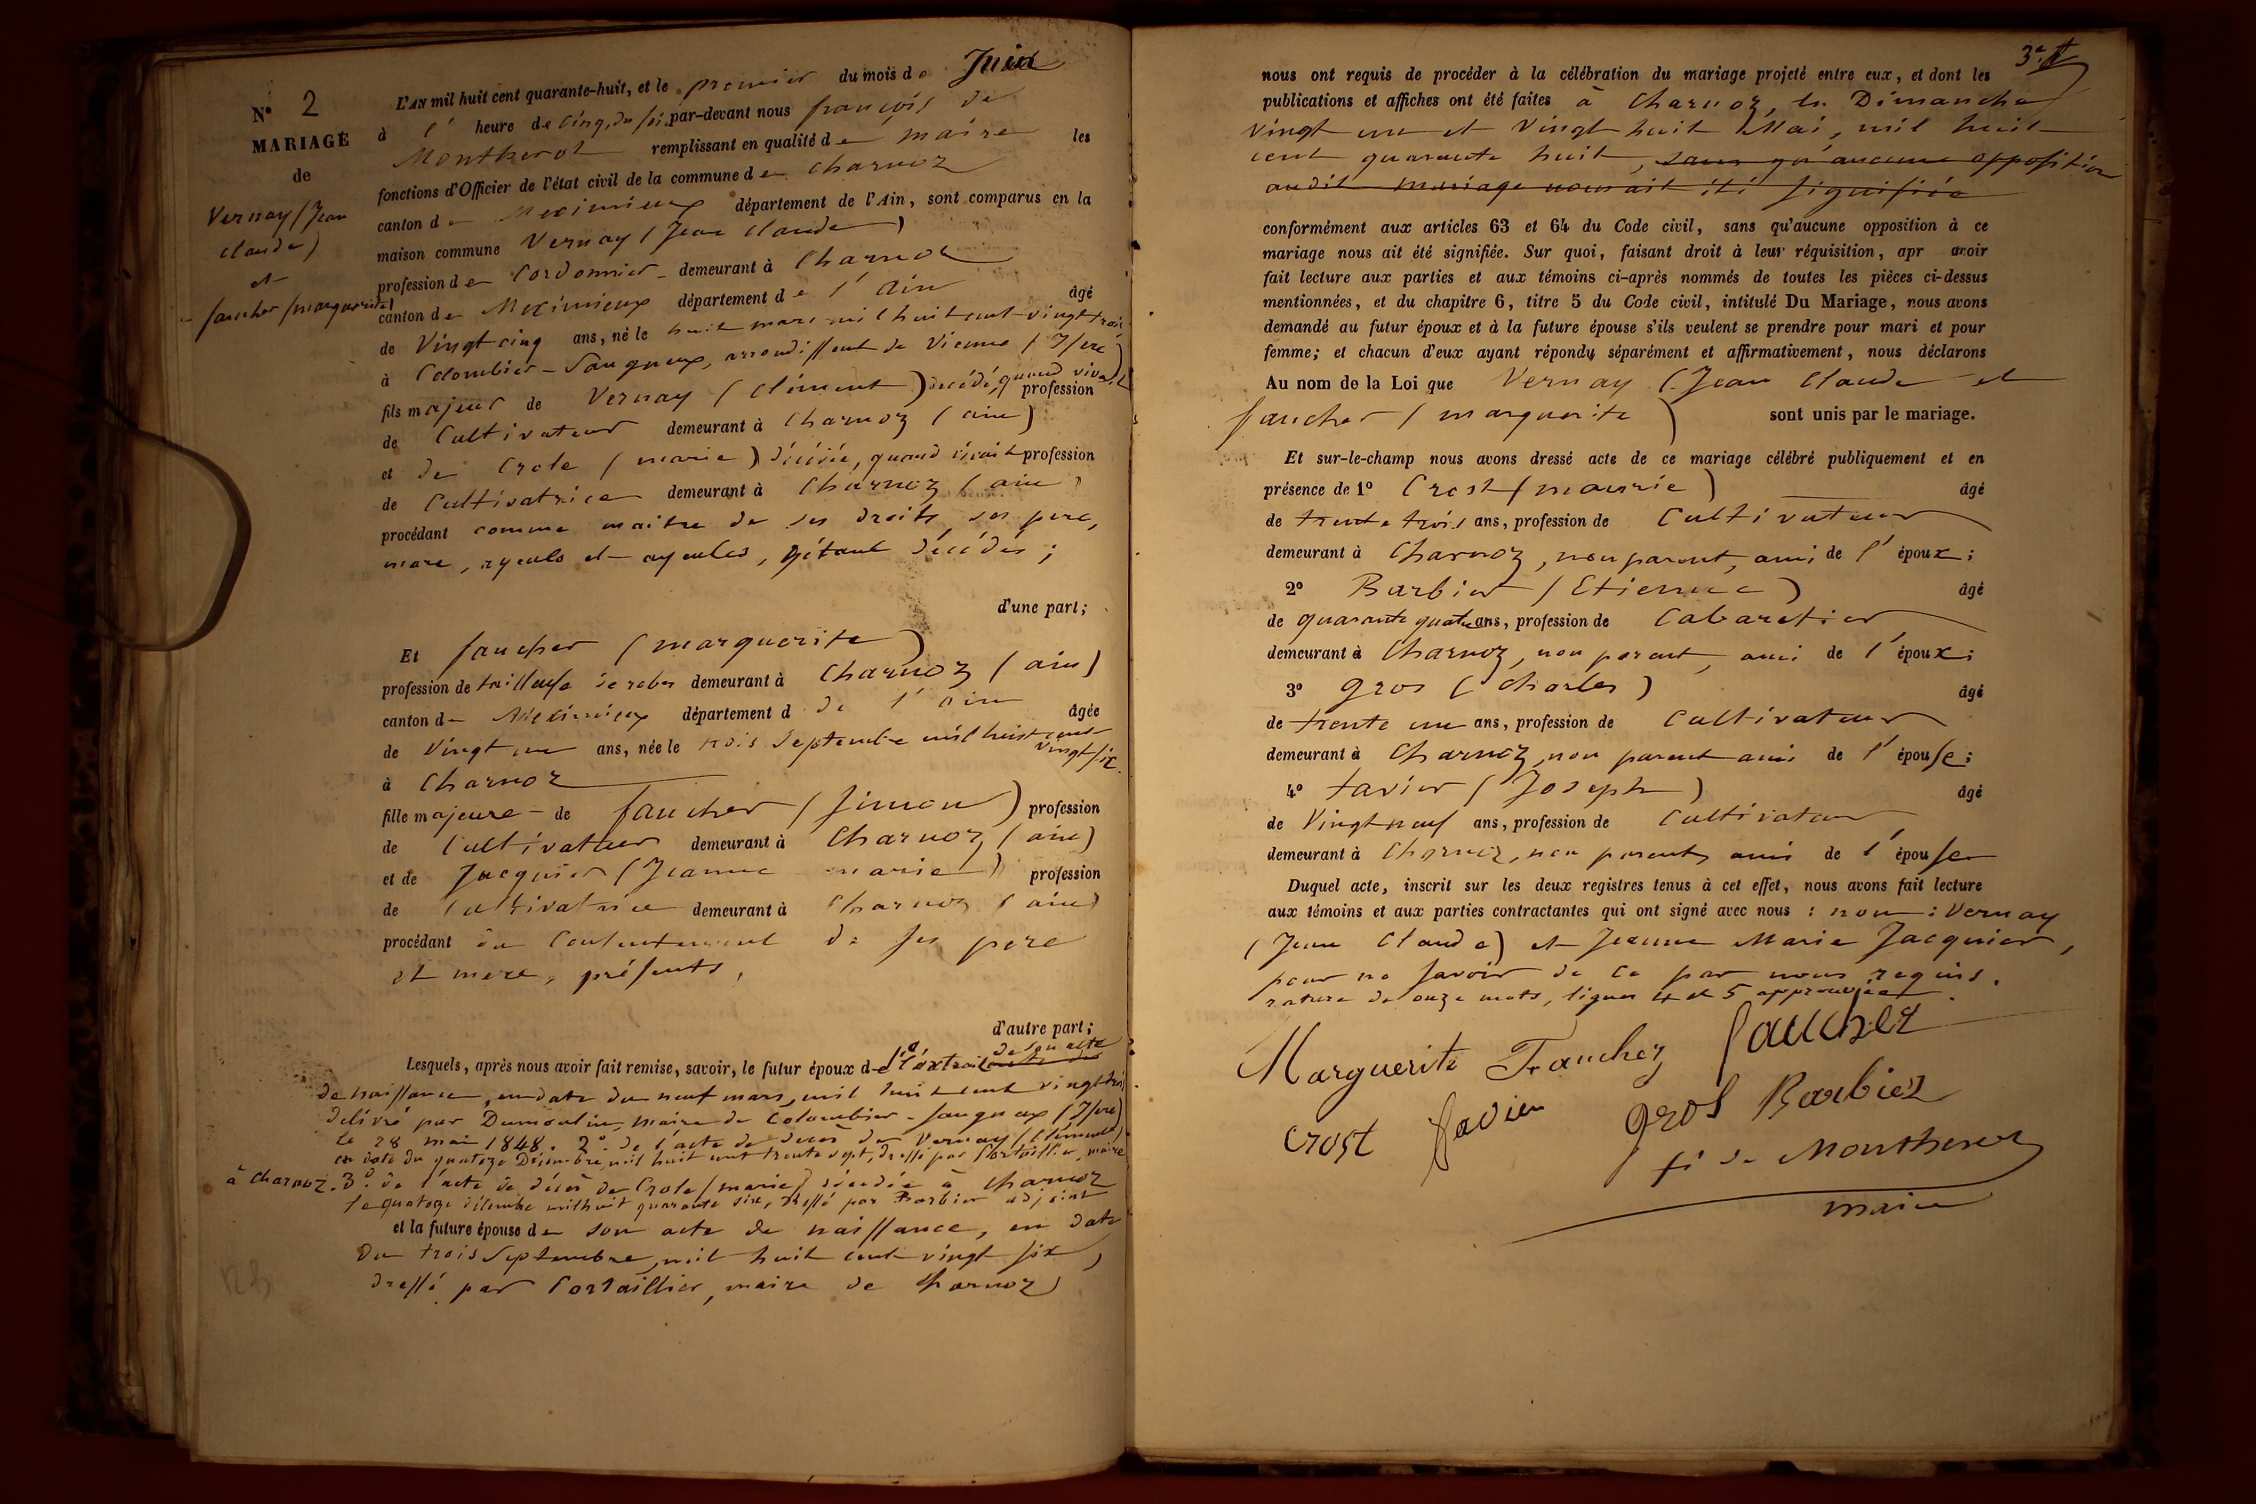 N° 2
MARIAGE
de
Vernay (Jean
claude)
et
faucher (marguerite)
L'AN mil huit cent quarante-huit, et le premier du mois de Juin
à l' heure de cinq, du soir par-devant nous françois de
Montherot remplissant en qualité de maire les
fonctions d'Officier de l'état civil de la commune de charnoz
canton de Meximieux département de l'Ain, sont comparus en la
maison commune Vernay (Jean claude)
profession de Cordonnier demeurant à Charnoz
canton de Meximieux département de l'Ain âgé
de Vingt cinq ans, né le huit mars mil huit cent vingt trois
à Colombier-Saugneux, arrondissent de Vienne (Isère)
fils majeur de Vernay (Clément) décédé, quand vivait profession
de Cultivateur demeurant à Charnoz (ain)
et de Crole (marie) décédée, quand vivait profession
de Cultivatrice demeurant à Charnoz (ain)
procédant comme maitre de ses droits, ses pere,
mere, ayeuls et ayeules, étant décédés ;
d'une part ;
Et faucher (marguerite)
profession de tailleuse de robes demeurant à Charnoz (ain)
canton de Meximieux département d de l'ain âgée
de Vingt un ans, née le trois Septembre mil huit cent
vingt six.
à Charnoz
fille majeure de faucher (Simon) profession
de Cultivateur demeurant à Charnoz (ain)
et de Jacquier (Jeanne marie) profession
de Cultivatrice demeurant à Charnoz (ain)
procédant du Consentement de ses pere
et mere, présents,
d'autre part ;
Lesquels, après nous avoir fait remise, savoir, le futur époux de 1° l'éxtrait de son acte
de naissance, en date du neuf mars, mil huit cent vingt trois
délivré par Dumoulin, maire de Colombier-Saugneux (Isère)
le 28 mai 1848. 2° de l'acte de décès de Vernay (Clément)
en date du quatorze Décembre, mil huit cent trente sept, dressé par Cortaillier, maire
à Charnoz. 3° de l'acte de décès de Crole (marie) décédée à Charnoz
le quatorze décembre mil huit quarante six, dressé par Barbier adjoint
et la future épouse de son acte de naissance, en date
du trois Septembre, mil huit cent vingt six,
dressé par Cortaillier, maire de Charnoz
3e
nous ont requis de procéder à la célébration du mariage projeté entre eux, et dont les
publications et affiches ont été faites à Charnoz, les Dimanche
vingt un et Vingt huit Mai, mil huit
cent quarante huit, sans qu'aucune opposition
audit mariage nous ait été signifiée
conformément aux articles 63 et 64 du Code civil, sans qu'aucune opposition à ce
mariage nous ait été signifiée. Sur quoi, faisant droit à leur réquisition, apr avoir
fait lecture aux parties et aux témoins ci-après nommés de toutes les pièces ci-dessus
mentionnées, et du chapitre 6, titre 5 du Code civil, intitulé Du Mariage, nous avons
demandé au futur époux et à la future épouse s'ils veulent se prendre pour mari et pour
femme; et chacun d'eux ayant répondu séparément et affirmativement, nous déclarons
Au nom de la Loi que Vernay (Jean Claude et
faucher (marguerite) sont unis par le mariage.
Et sur-le-champ nous avons dressé acte de ce mariage célébré publiquement et en
présence de 1° Crost (maurie) âgé
de trente trois ans, profession de Cultivateur
demeurant à Charnoz, non parent, ami de l'époux ;
2° Barbier (Etienne) âgé
de quarante quatre ans, profession de Cabaretier
demeurant à Charnoz, non parent, ami de l'époux ;
3° gros (Charles) âgé
de trente un ans, profession de Cultivateur
demeurant à Charnoz, non parent ami de l'épouse ;
4° tavier (Joseph) âgé
de Vingt neuf ans, profession de Cultivateur
demeurant à Charnoz, non parent, ami de l'épouse
Duquel acte, inscrit sur les deux registres tenus à cet effet, nous avons fait lecture
aux témoins et aux parties contractantes qui ont signé avec nous : non : Vernay
(Jean Claude) et Jeanne Marie Jacquier,
pour ne savoir de ce par nous requis.
rature de onze mots, lignes 4 et 5 approuvée.
Marguerite Faucher faucher
crost tavier gros Barbier
f. de Montherot
maire